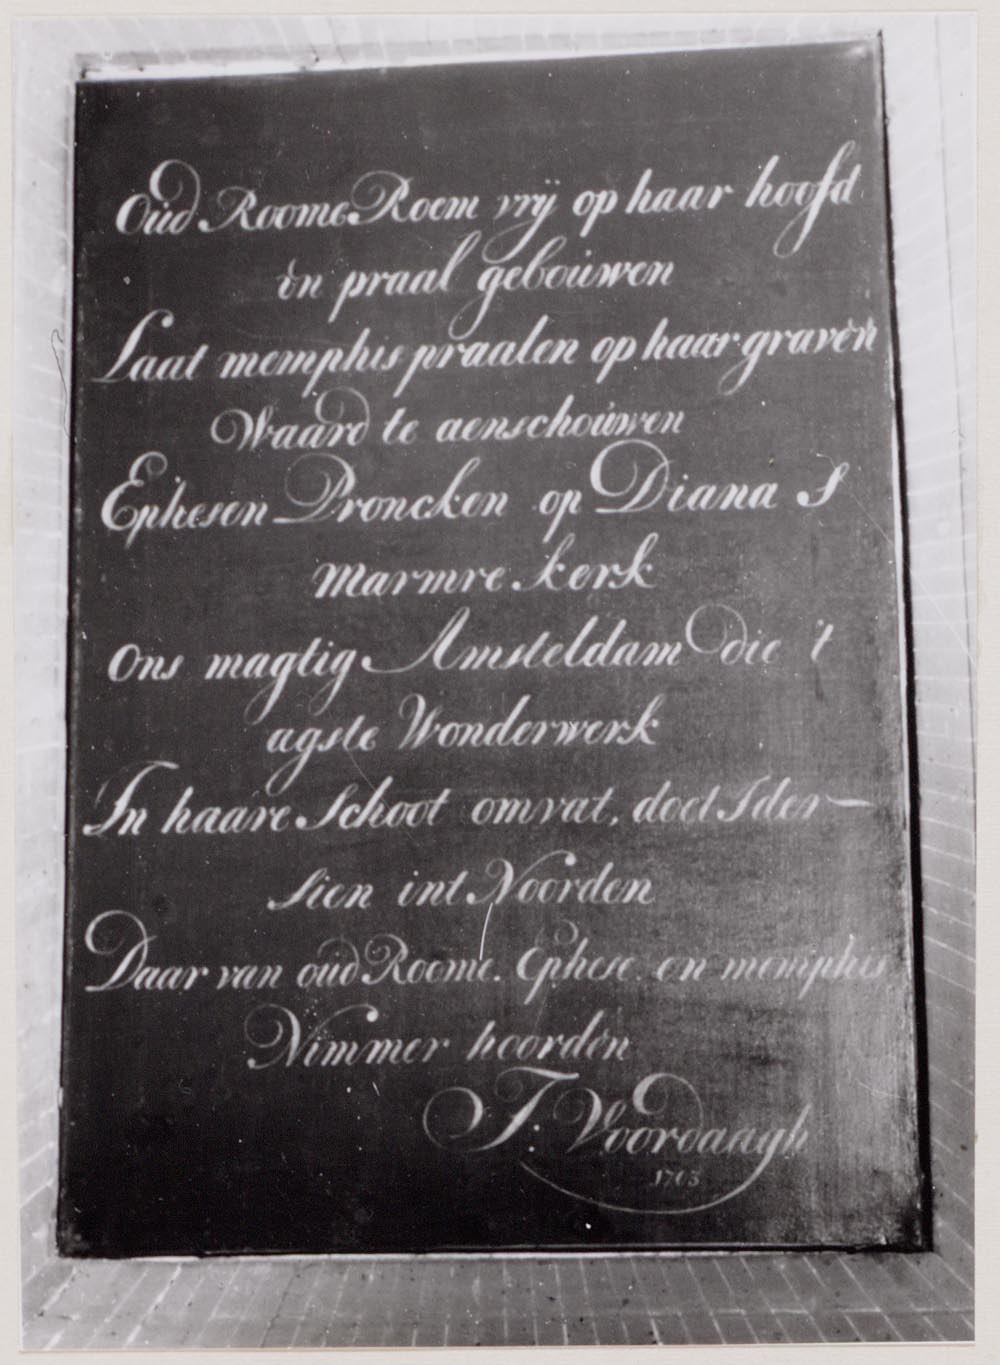 Oud Roome Roem vrij op haar hoofd
in praal gebouwen
Laat memphis praalen op haar graven
Waard te aenschouwen
Ephesen Proncken op Diana S
marmre kerk
Ons magtig Amsteldam die 't
agste Wonderwerk
In haare Schoot omvat, doet Ider
Sien int Noorden
Daar van oud Roome. Ephese en memphis
Nimmer hoorden
J. Voordaagh
1705